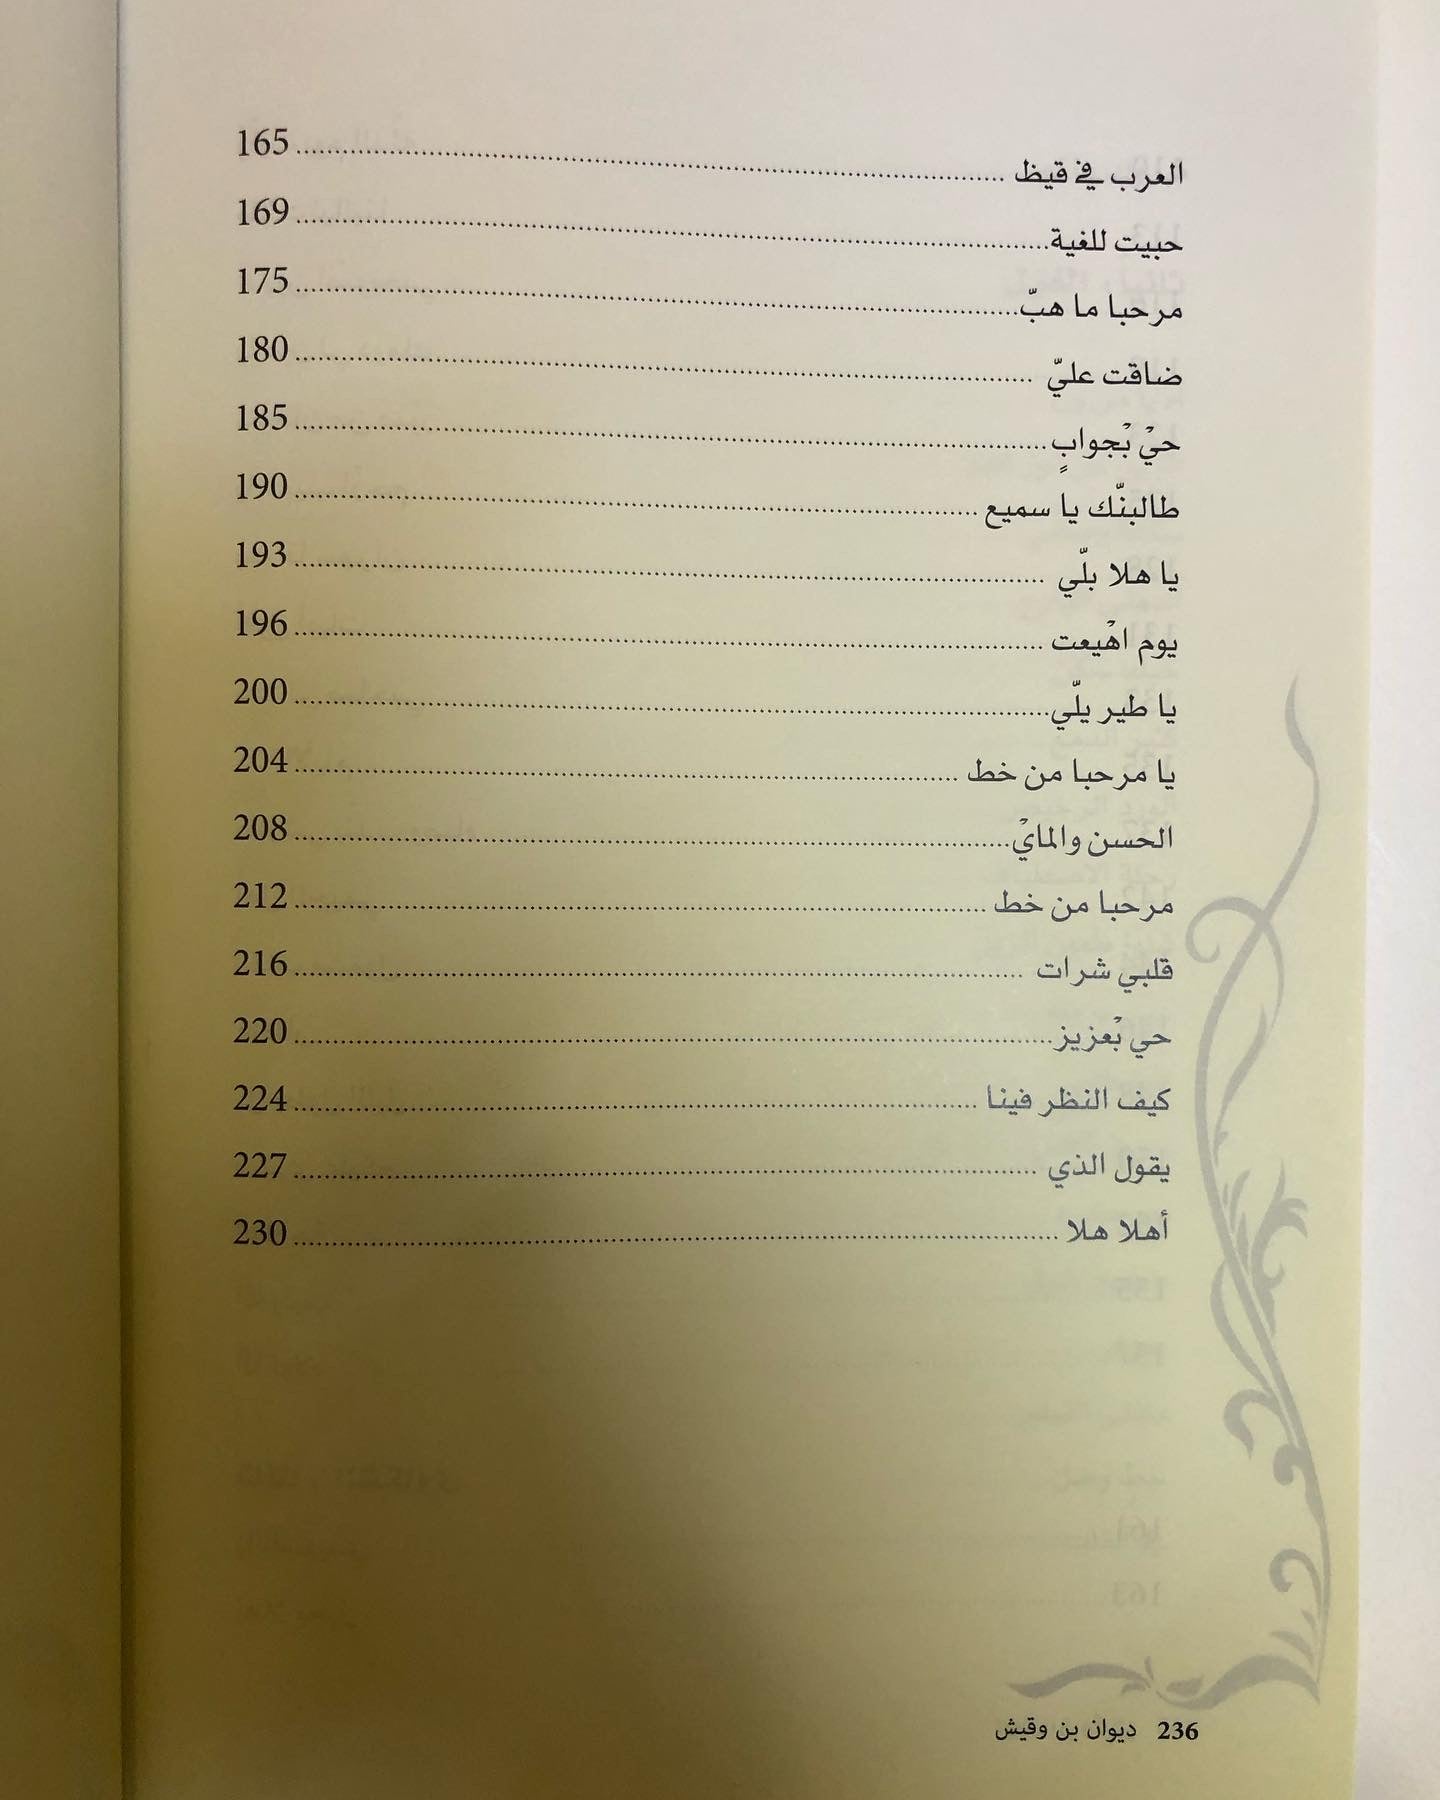 العرب في قيظ ........ 165
حبيت للغية ........ 169
مرحبا ما هبّ ........ 175
ضاقت عليّ ........ 180
حيْ بْجوابٍ ........ 185
طالبنّك يا سميع ........ 190
يا هلا بلّي ........ 193
يوم اهْيعت ........ 196
يا طير يلّي ........ 200
يا مرحبا من خط ........ 204
الحسن والمايْ ........ 208
مرحبا من خط ........ 212
قلبي شرات ........ 216
حي بْعزيز ........ 220
كيف النظر فينا ........ 224
يقول الذي ........ 227
أهلا هلا ........ 230
236 ديوان بن وقيش